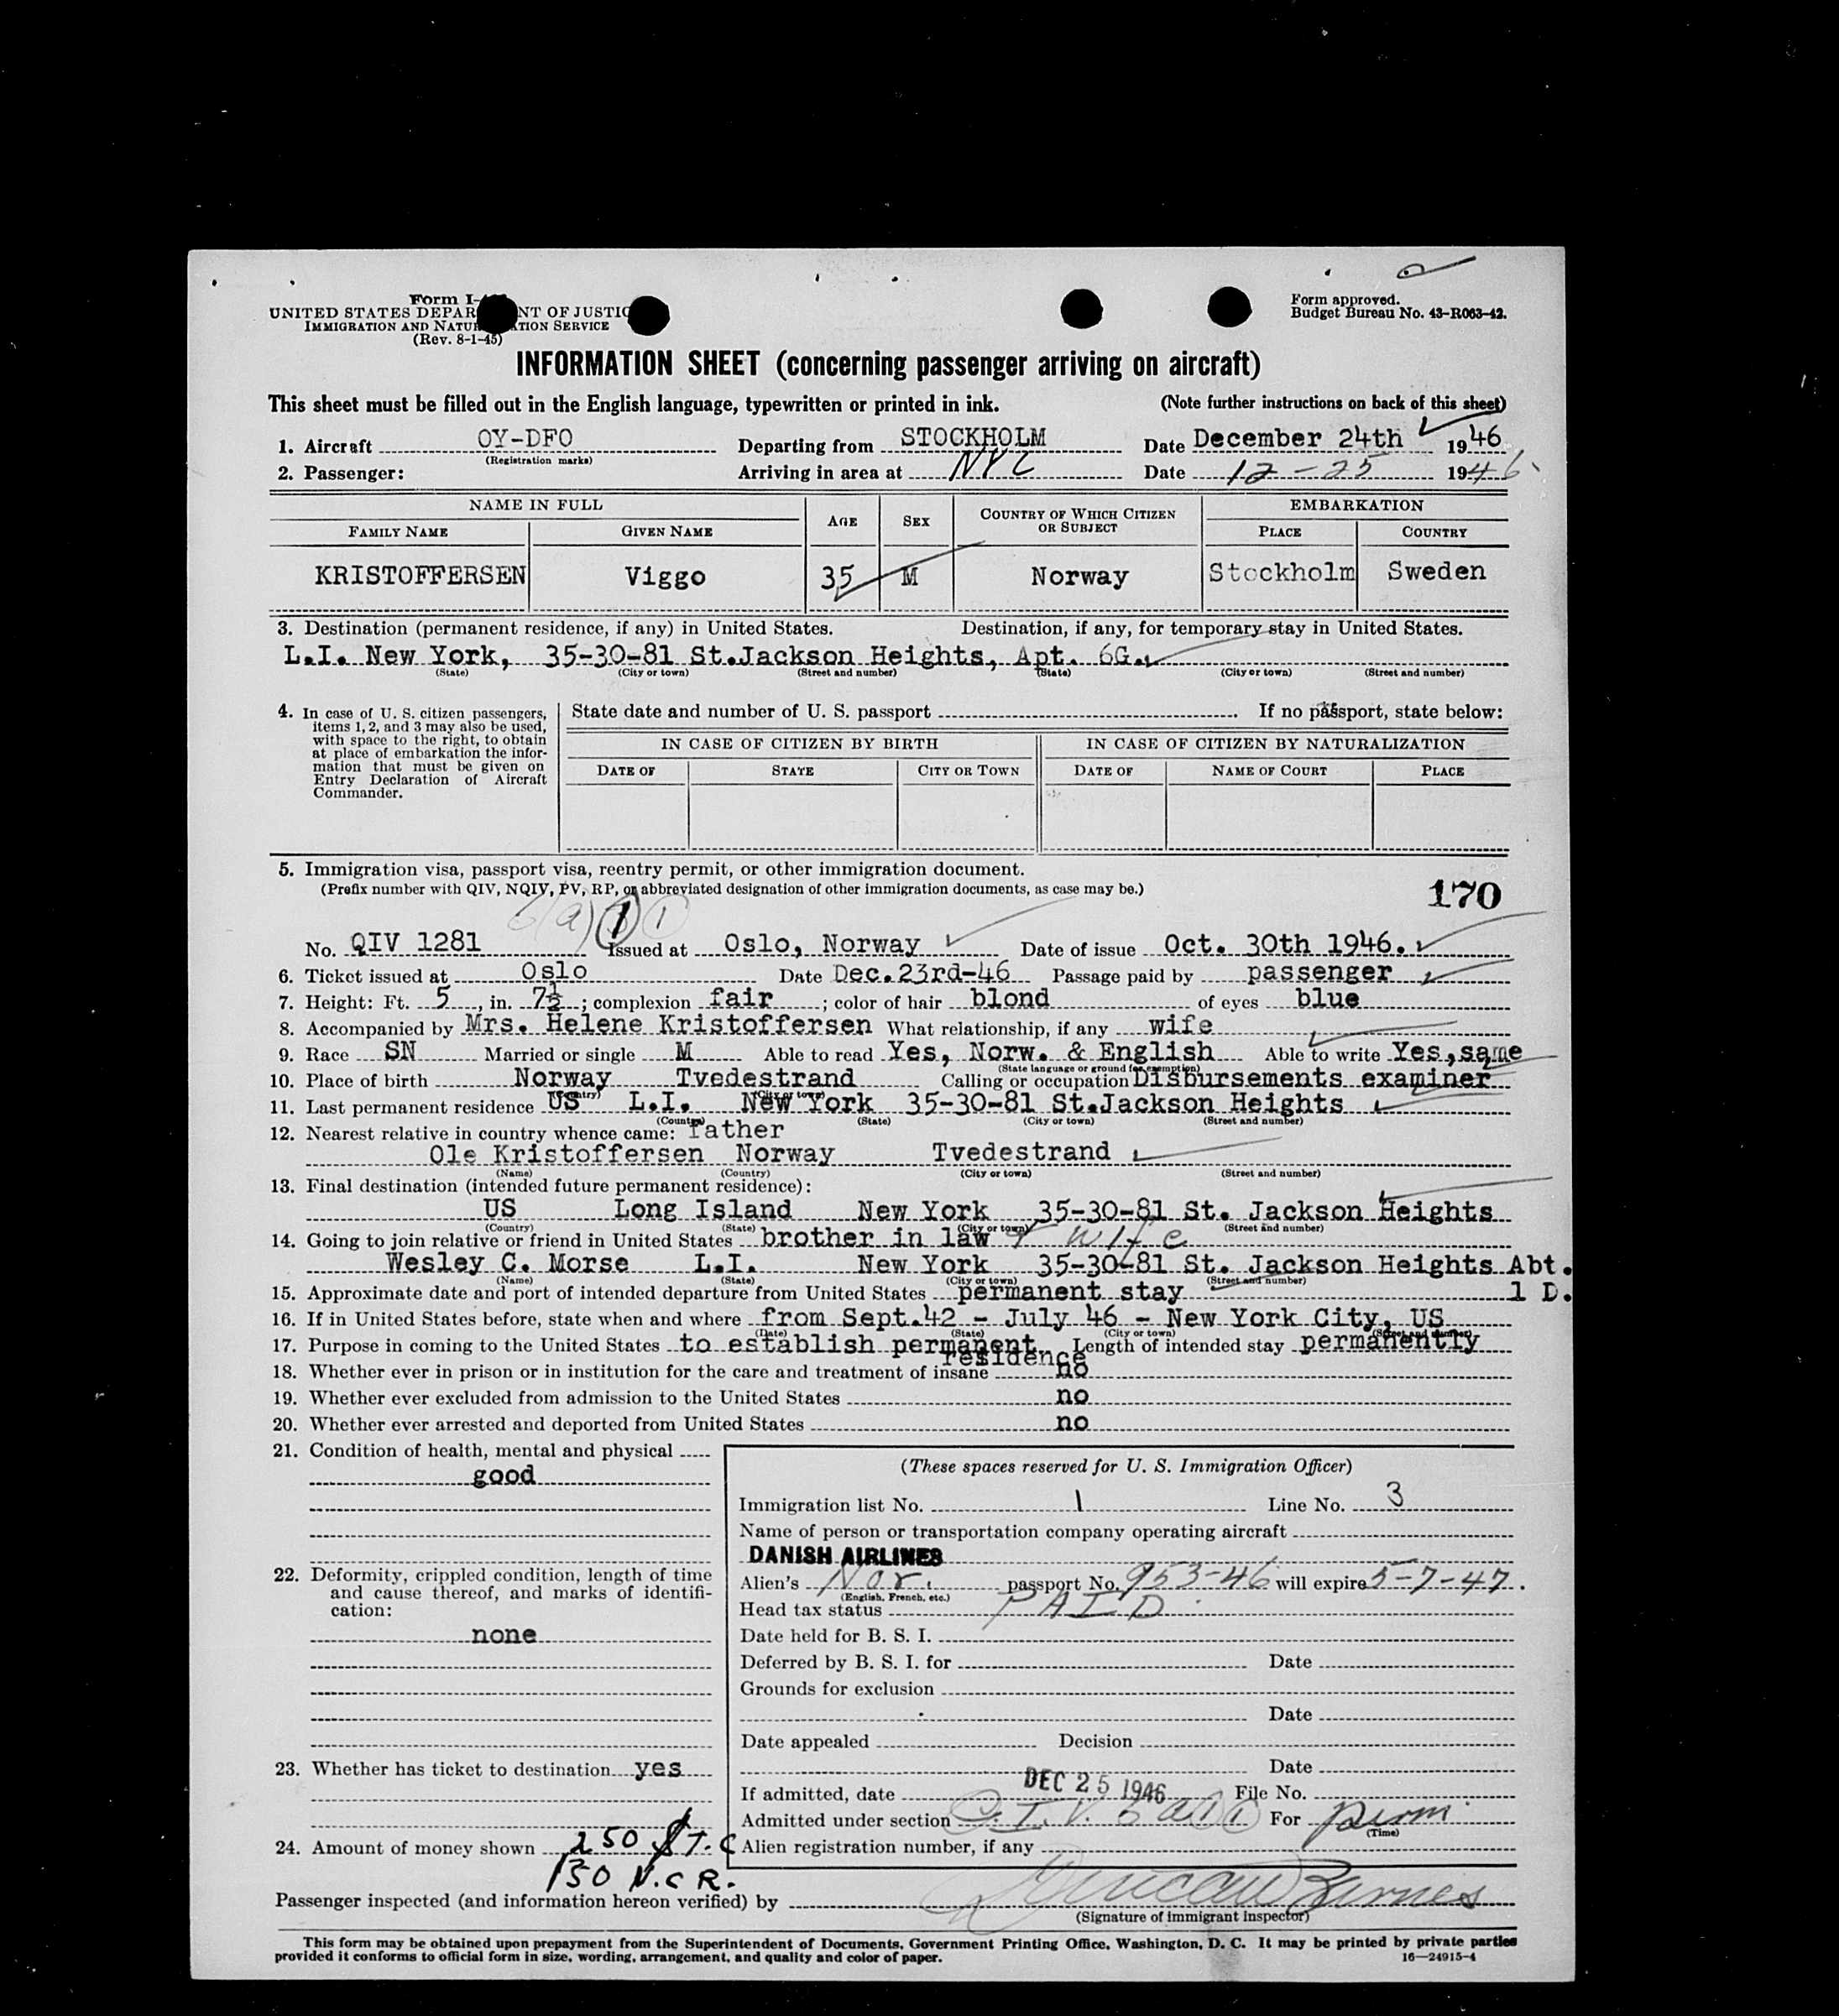 Form I-
UNITED STATES DEPAR NT OF JUSTIC
IMMIGRATION AND NATU ATION SERVICE
(Rev. 8-1-45)
Form approved.
Budget Bureau No. 43-R063-42.
INFORMATION SHEET (concerning passenger arriving on aircraft)
This sheet must be filled out in the English language, typewritten or printed in ink. (Note further instructions on back of this sheet)
1. Aircraft OY-DFO Departing from STOCKHOLM Date December 24th 1946
(Registration marks)
2. Passenger: Arriving in area at NYC Date 12-25 1946
NAME IN FULL AGE SEX COUNTRY OF WHICH CITIZEN OR SUBJECT EMBARKATION
FAMILY NAME GIVEN NAME PLACE COUNTRY
KRISTOFFERSEN Viggo 35 M Norway Stockholm Sweden
3. Destination (permanent residence, if any) in United States. Destination, if any, for temporary stay in United States.
L.I. New York, 35-30-81 St.Jackson Heights, Apt. 6G.
(State) (City or town) (Street and number) (State) (City or town) (Street and number)
4. In case of U. S. citizen passengers, items 1, 2, and 3 may also be used, with space to the right, to obtain at place of embarkation the information that must be given on Entry Declaration of Aircraft Commander.
State date and number of U. S. passport . If no passport, state below:
IN CASE OF CITIZEN BY BIRTH IN CASE OF CITIZEN BY NATURALIZATION
DATE OF STATE CITY OR TOWN DATE OF NAME OF COURT PLACE
5. Immigration visa, passport visa, reentry permit, or other immigration document.
(Prefix number with QIV, NQIV, PV, RP, or abbreviated designation of other immigration documents, as case may be.)
170
No. QIV 1281 Issued at Oslo, Norway Date of issue Oct. 30th 1946.
6. Ticket issued at Oslo Date Dec.23rd-46 Passage paid by passenger
7. Height: Ft. 5, in. 7½; complexion fair; color of hair blond of eyes blue
8. Accompanied by Mrs. Helene Kristoffersen What relationship, if any wife
9. Race SN Married or single M Able to read Yes, Norw. & English Able to write Yes,same
(State language or ground for exemption)
10. Place of birth Norway Tvedestrand Calling or occupation Disbursements examiner
(Country) (City or town)
11. Last permanent residence US L.I. New York 35-30-81 St.Jackson Heights
(Country) (State) (City or town) (Street and number)
12. Nearest relative in country whence came: father
Ole Kristoffersen Norway Tvedestrand
(Name) (Country) (City or town) (Street and number)
13. Final destination (intended future permanent residence):
US Long Island New York 35-30-81 St. Jackson Heights
(Country) (State) (City or town) (Street and number)
14. Going to join relative or friend in United States brother in law & wife
Wesley C. Morse L.I. New York 35-30-81 St. Jackson Heights Abt.
(Name) (State) (City or town) (Street and number)
15. Approximate date and port of intended departure from United States permanent stay 1 D.
16. If in United States before, state when and where from Sept.42 - July 46 - New York City, US
(Date) (State) (City or town) (Street and number)
17. Purpose in coming to the United States to establish permanent residence Length of intended stay permanently
18. Whether ever in prison or in institution for the care and treatment of insane no
19. Whether ever excluded from admission to the United States no
20. Whether ever arrested and deported from United States no
21. Condition of health, mental and physical
good
22. Deformity, crippled condition, length of time and cause thereof, and marks of identification:
none
23. Whether has ticket to destination yes
24. Amount of money shown 250 $ T.C
130 N.C R.
(These spaces reserved for U. S. Immigration Officer)
Immigration list No. 1 Line No. 3
Name of person or transportation company operating aircraft
DANISH AIRLINES
Alien's Nor. passport No. 953-46 will expire 5-7-47.
(English, French, etc.)
Head tax status PAID
Date held for B. S. I.
Deferred by B. S. I. for Date
Grounds for exclusion
Date
Date appealed Decision
Date
If admitted, date DEC 25 1946 File No.
Admitted under section Q.I.V. 6 a (1) (1) For perm.
(Time)
Alien registration number, if any
Passenger inspected (and information hereon verified) by Duncan Barnes
(Signature of immigrant inspector)
This form may be obtained upon prepayment from the Superintendent of Documents, Government Printing Office, Washington, D. C. It may be printed by private parties
provided it conforms to official form in size, wording, arrangement, and quality and color of paper. 16—24915-4